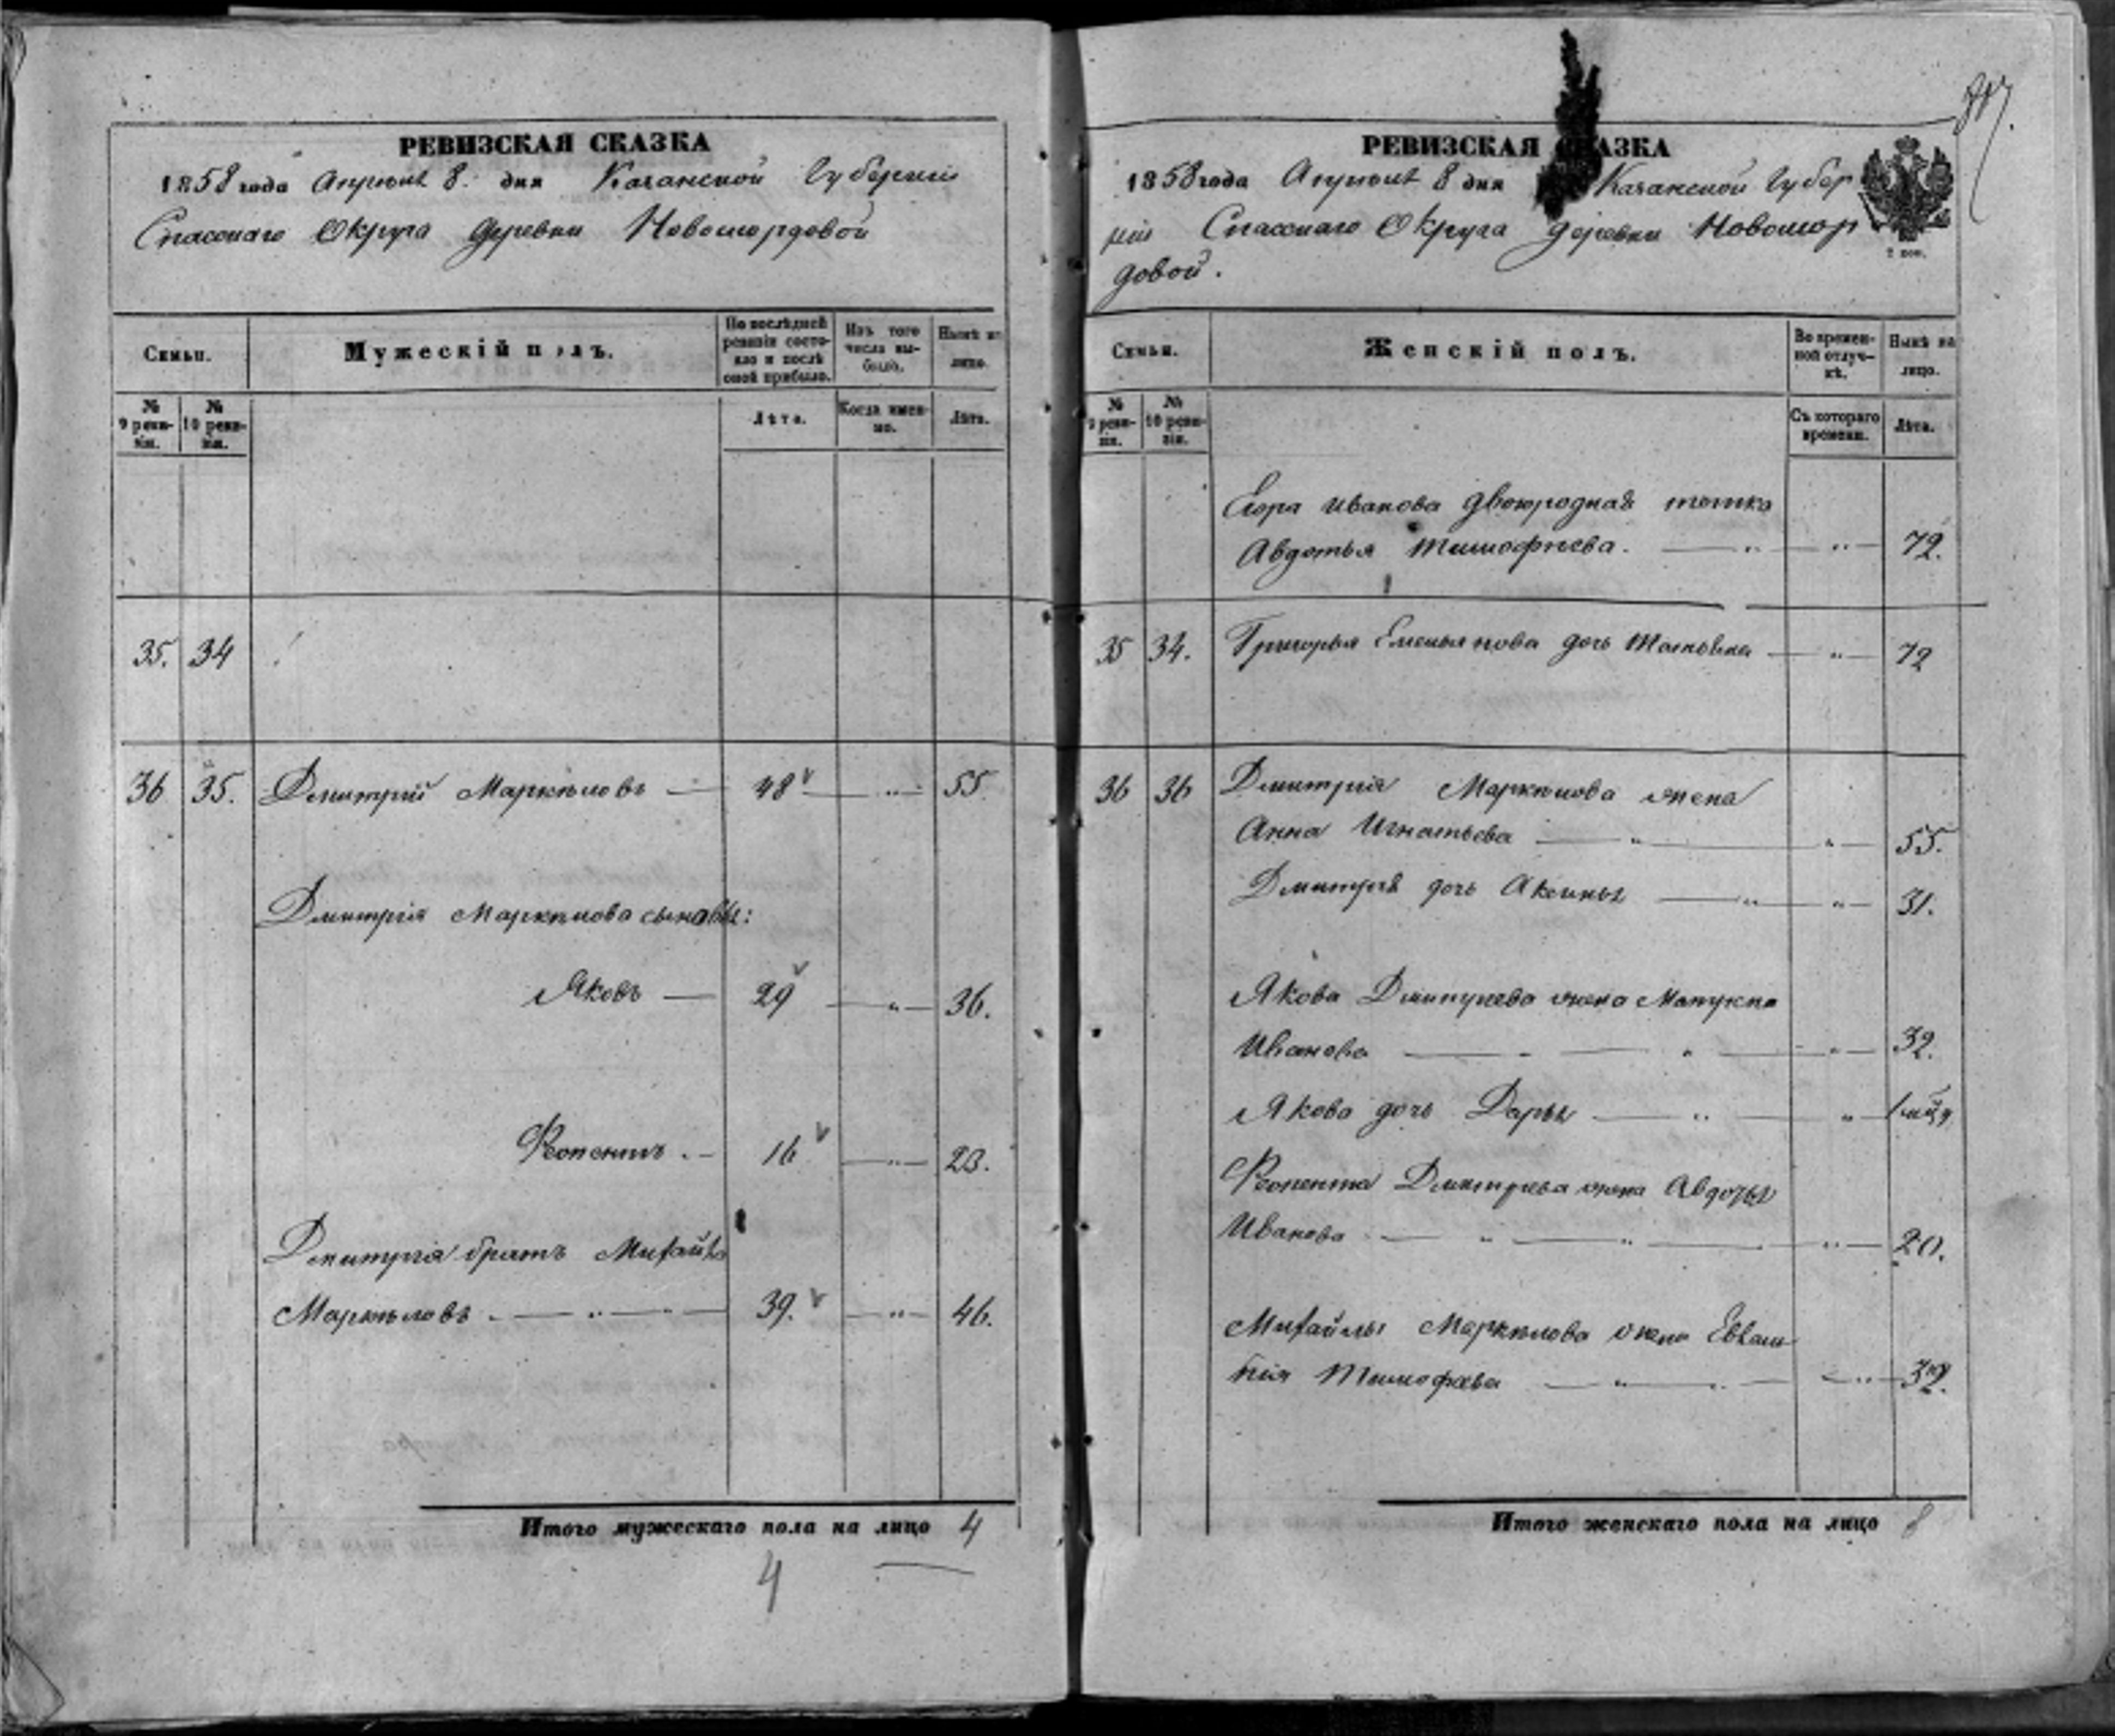 РЕВИЗСКАЯ СКАЗКА
1858 года Апреля 8. дня Казанской Губернии
Спасскаго Округа деревни Новомордовой
Семьи.
Мужескій полъ.
По послѣдней ревизіи состояло и послѣ оной прибыло.
Изъ того числа выбыло.
Нынѣ на лицо.
№ 9 ревизіи.
№ 10 ревизіи.
Лѣта.
Когда именно.
Лѣта.
35. 34
36 35. Дмитрій Маркѣловъ — 48 — " — 55.
Дмитрія Маркѣлова сыновья:
Яковъ — 29 — " — 36.
16 — " — 23.
Дмитрія братъ Михайла
Маркѣловъ . — " — " — 39. — " — 46.
Итого мужескаго пола на лицо 4
4
РЕВИЗСКАЯ СКАЗКА
1858 года Апреля 8 дня Казанской Губер
ніи Спасскаго Округа деревни Новомор
довой.
2 коп.
Семьи.
Женскій полъ.
Во временной отлучкѣ.
Нынѣ на лицо.
№ 9 ревизіи.
№ 10 ревизіи.
Съ котораго времени.
Лѣта.
Егора Иванова двоюродная тетка
Авдотья Тимофѣева. — " — " — 72.
35 34. Григорья Емельянова дочь — " — 72
36 36 Дмитрія Маркѣлова жена
Анна Игнатьева — " — " — 55.
Дмитрія дочь Аксинья — " — " — 31.
Якова Дмитріева жена
Иванова — " — " — " — 32.
Якова дочь Дарья — " — "
Дмитріева жена Авдотья
Иванова — " — " — " — 20.
Михайлы Маркѣлова жена
Тимофѣева — " — " — " —
Итого женскаго пола на лицо 8